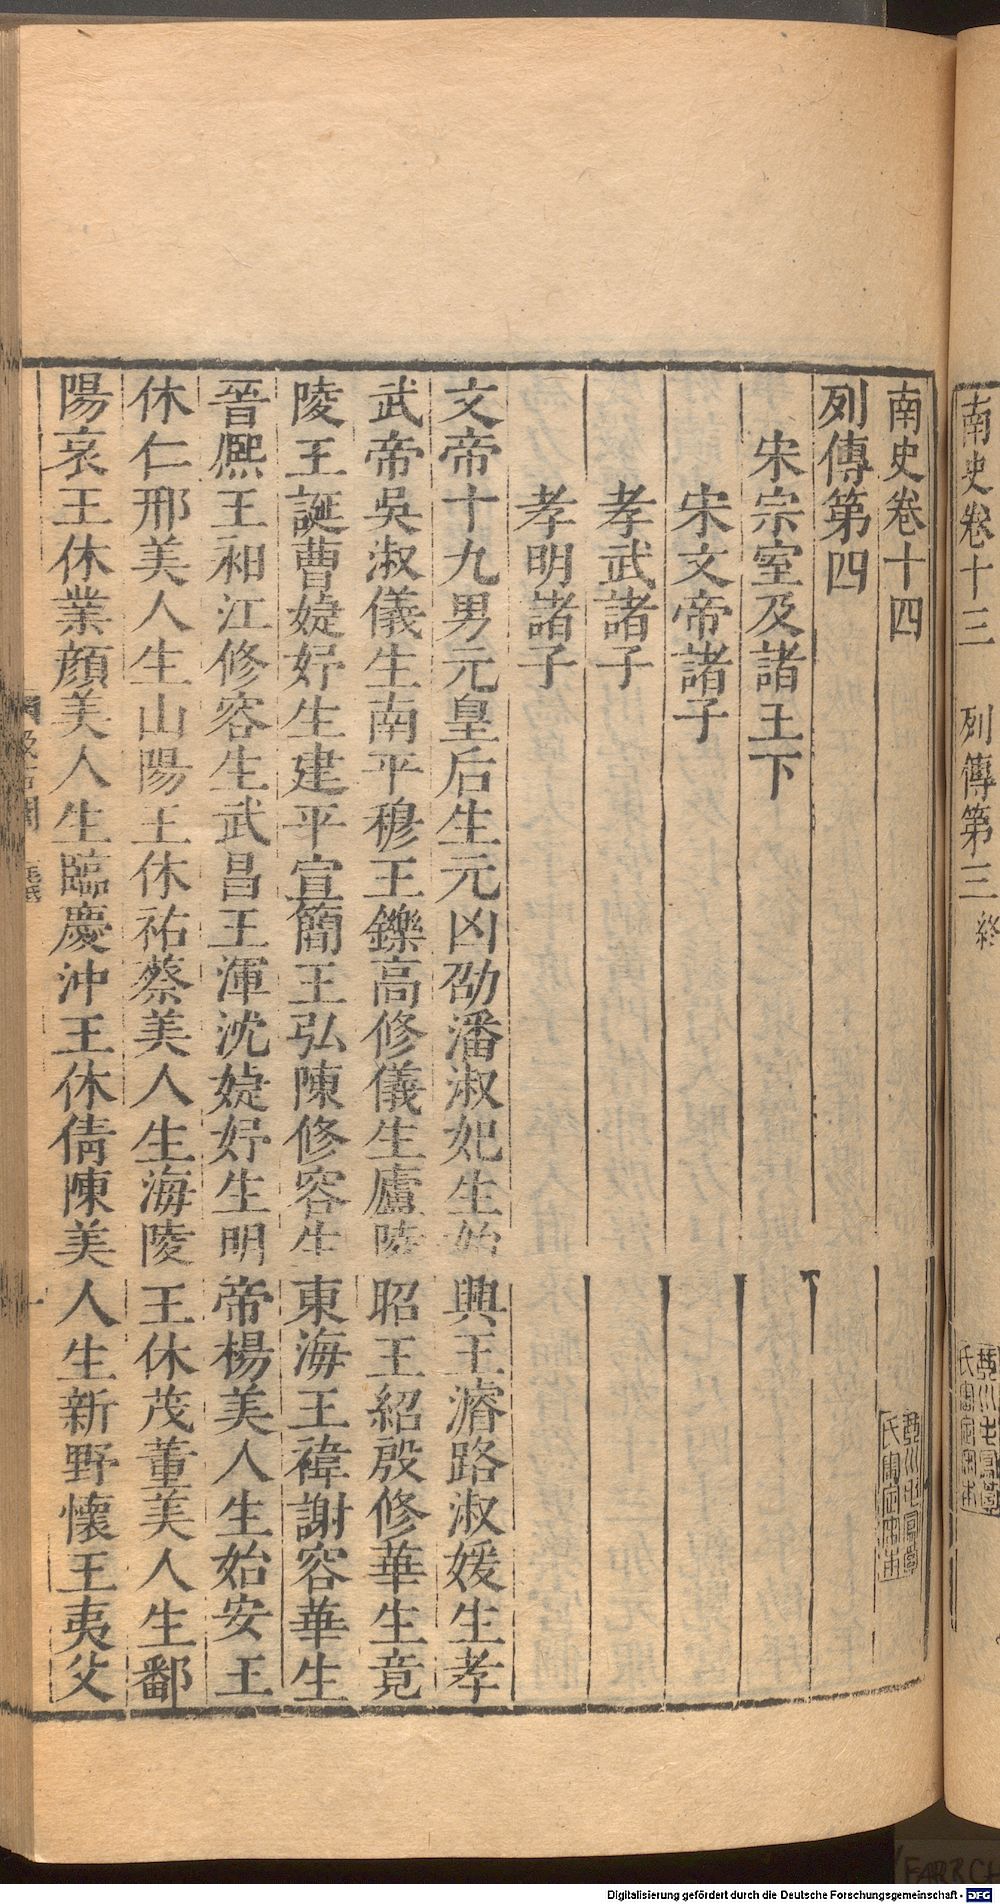 南史卷十三　列傳第三　終
琴川毛鳳苞
氏審定宋本
南史卷十四
琴川毛鳳苞
氏審定宋本
列傳第四
宋宗室及諸王下
宋文帝諸子
孝武諸子
孝明諸子
文帝十九男元皇后生元凶劭潘淑妃生始興王濬路淑媛生孝
武帝吳淑儀生南平穆王鑠高修儀生廬陵昭王紹殷修華生竟
陵王誕曹婕妤生建平宣簡王弘陳修容生東海王褘謝容華生
晉熙王昶江修容生武昌王渾沈婕妤生明帝楊美人生始安王
休仁邢美人生山陽王休祐蔡美人生海陵王休茂董美人生鄱
陽哀王休業顏美人生臨慶沖王休倩陳美人生新野懷王夷父
汲古閣
一
Digitalisierung gefördert durch die Deutsche Forschungsgemeinschaft - DFG